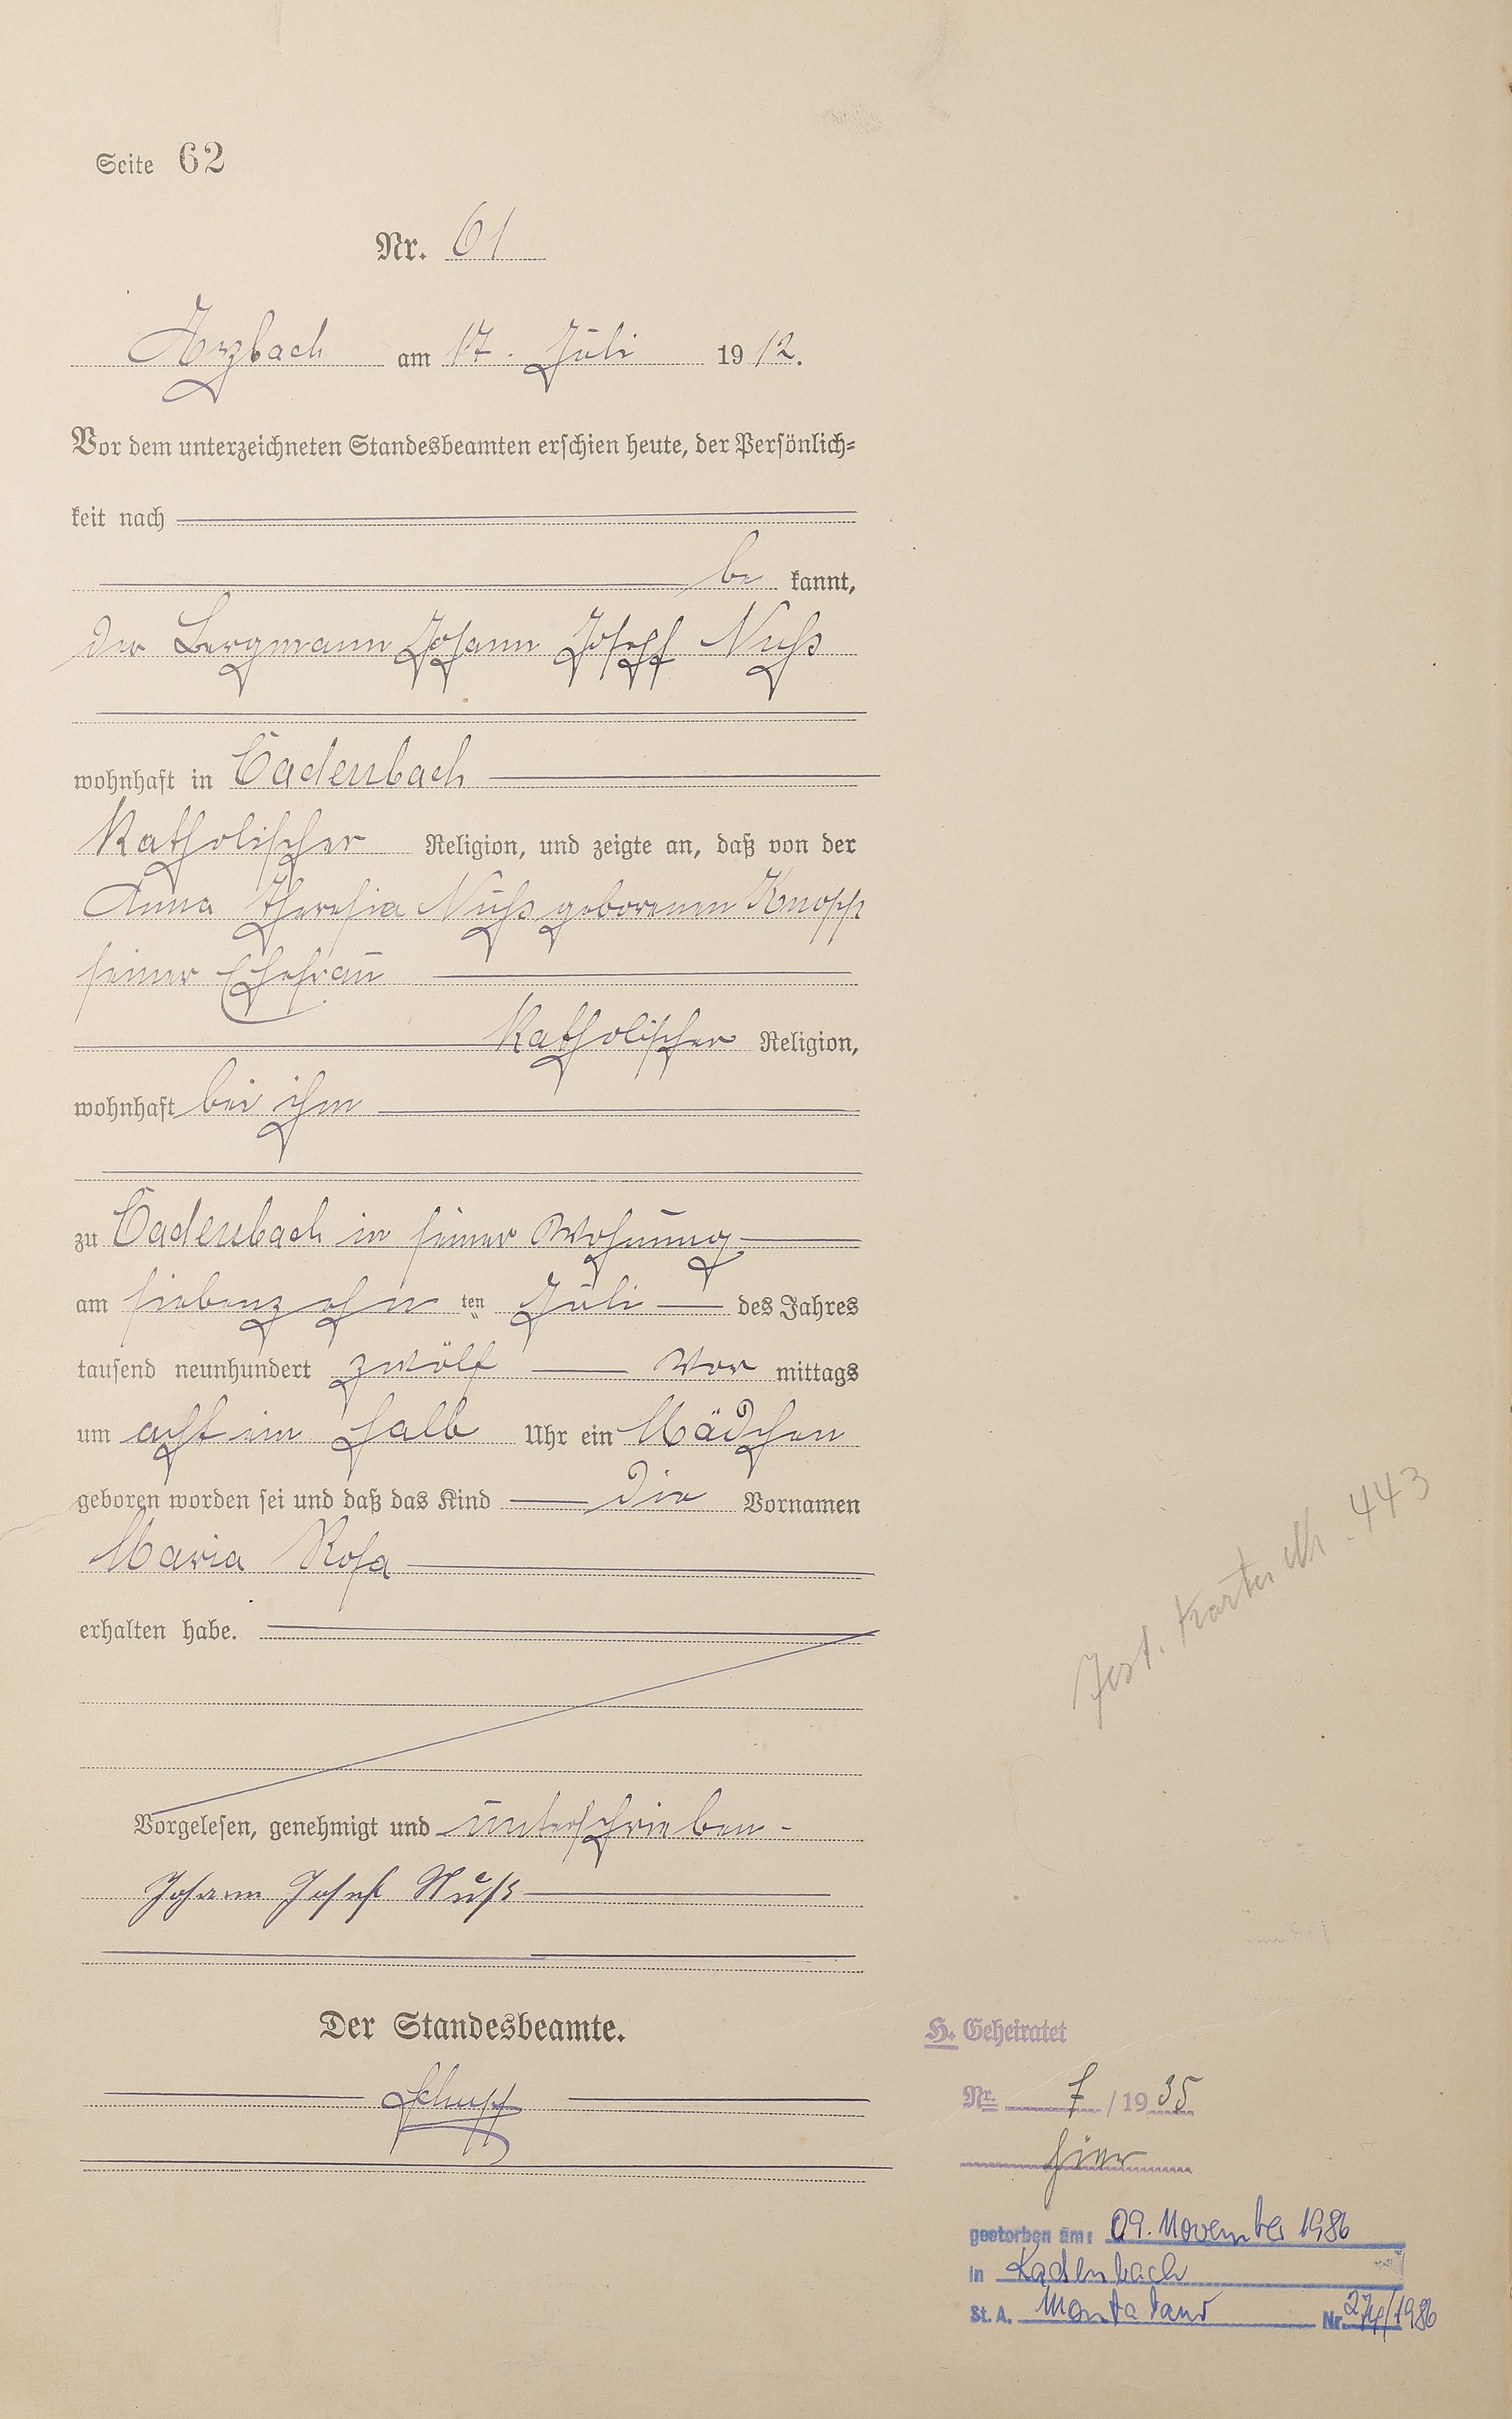 Seite 62
Nr. 61
Arzbach am 17. Juli 1912.
Vor dem unterzeichneten Standesbeamten erschien heute, der Persönlich-
keit nach
be kannt,
der Bergmann Johann Joseph Nuß
wohnhaft in Cadenbach
Katholischer Religion, und zeigte an, daß von der
Anna Theresia Nuß geborenen Knopp
seiner Ehefrau
Katholischer Religion,
wohnhaft bei ihm
zu Cadenbach in seiner Wohnung
am siebenzehn ten Juli des Jahres
tausend neunhundert zwölf Vor mittags
um acht ein halb Uhr ein Mädchen
geboren worden sei und daß das Kind die Vornamen
Maria Rosa
erhalten habe.
Vorgelesen, genehmigt und unterschrieben -
Johann Josef Nuß
Der Standesbeamte.
H. Geheiratet
Nr. 7 / 1935
hier
gestorben am: 09. November 1986
in Kadenbach
St. A. Montabaur Nr. 274/1986
Karte Nr. 443